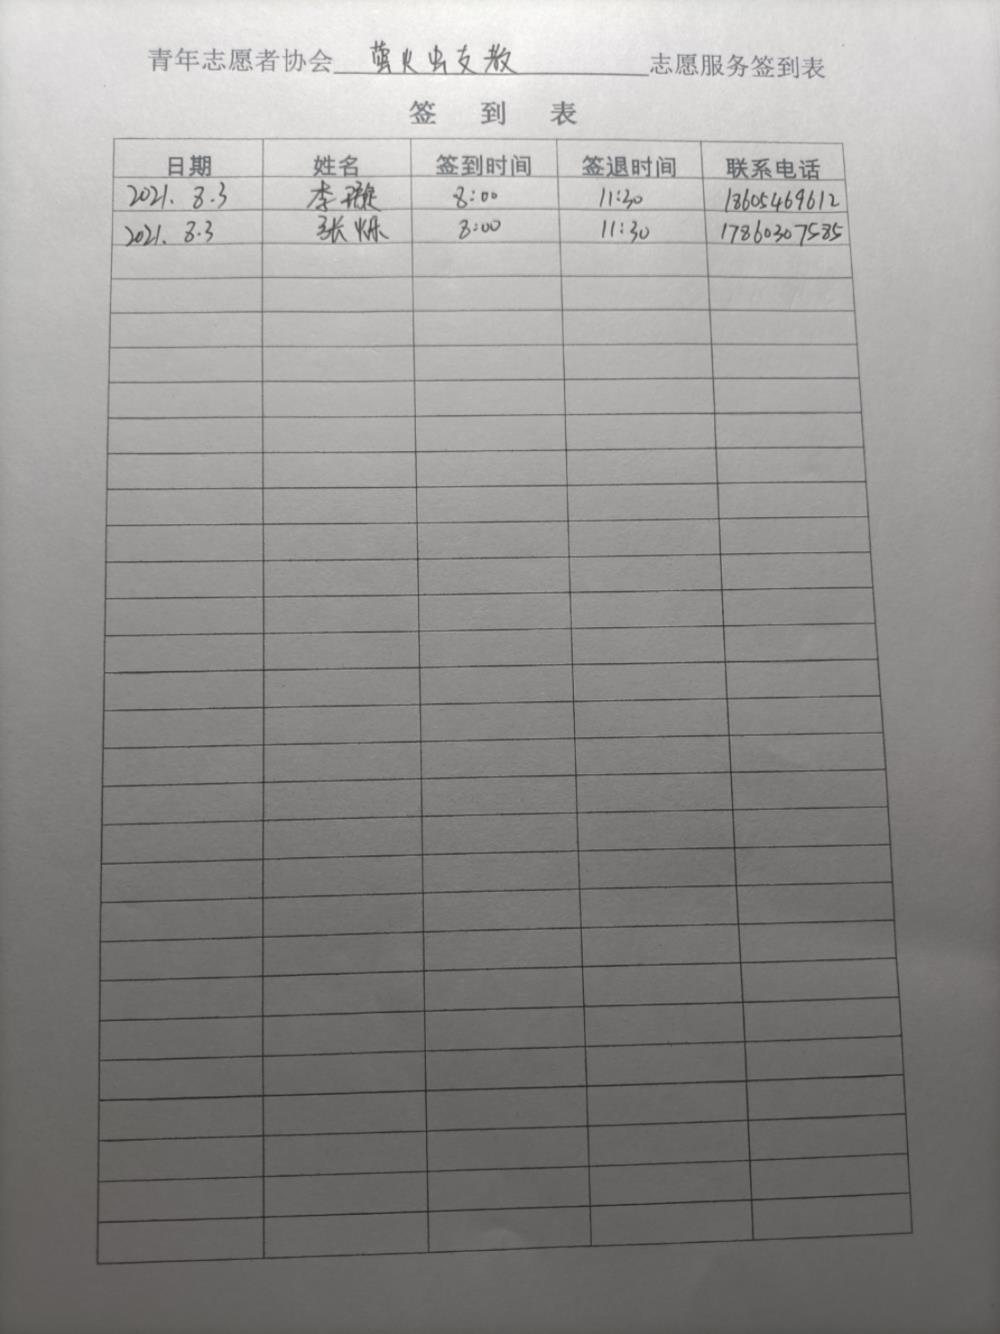 青年志愿者协会 萤火虫支教 志愿服务签到表
签 到 表
日期 姓名 签到时间 签退时间 联系电话
2021. 8.3 李璇 8:00 11:30 18605469612
2021. 8.3 张烁 8:00 11:30 17860307585